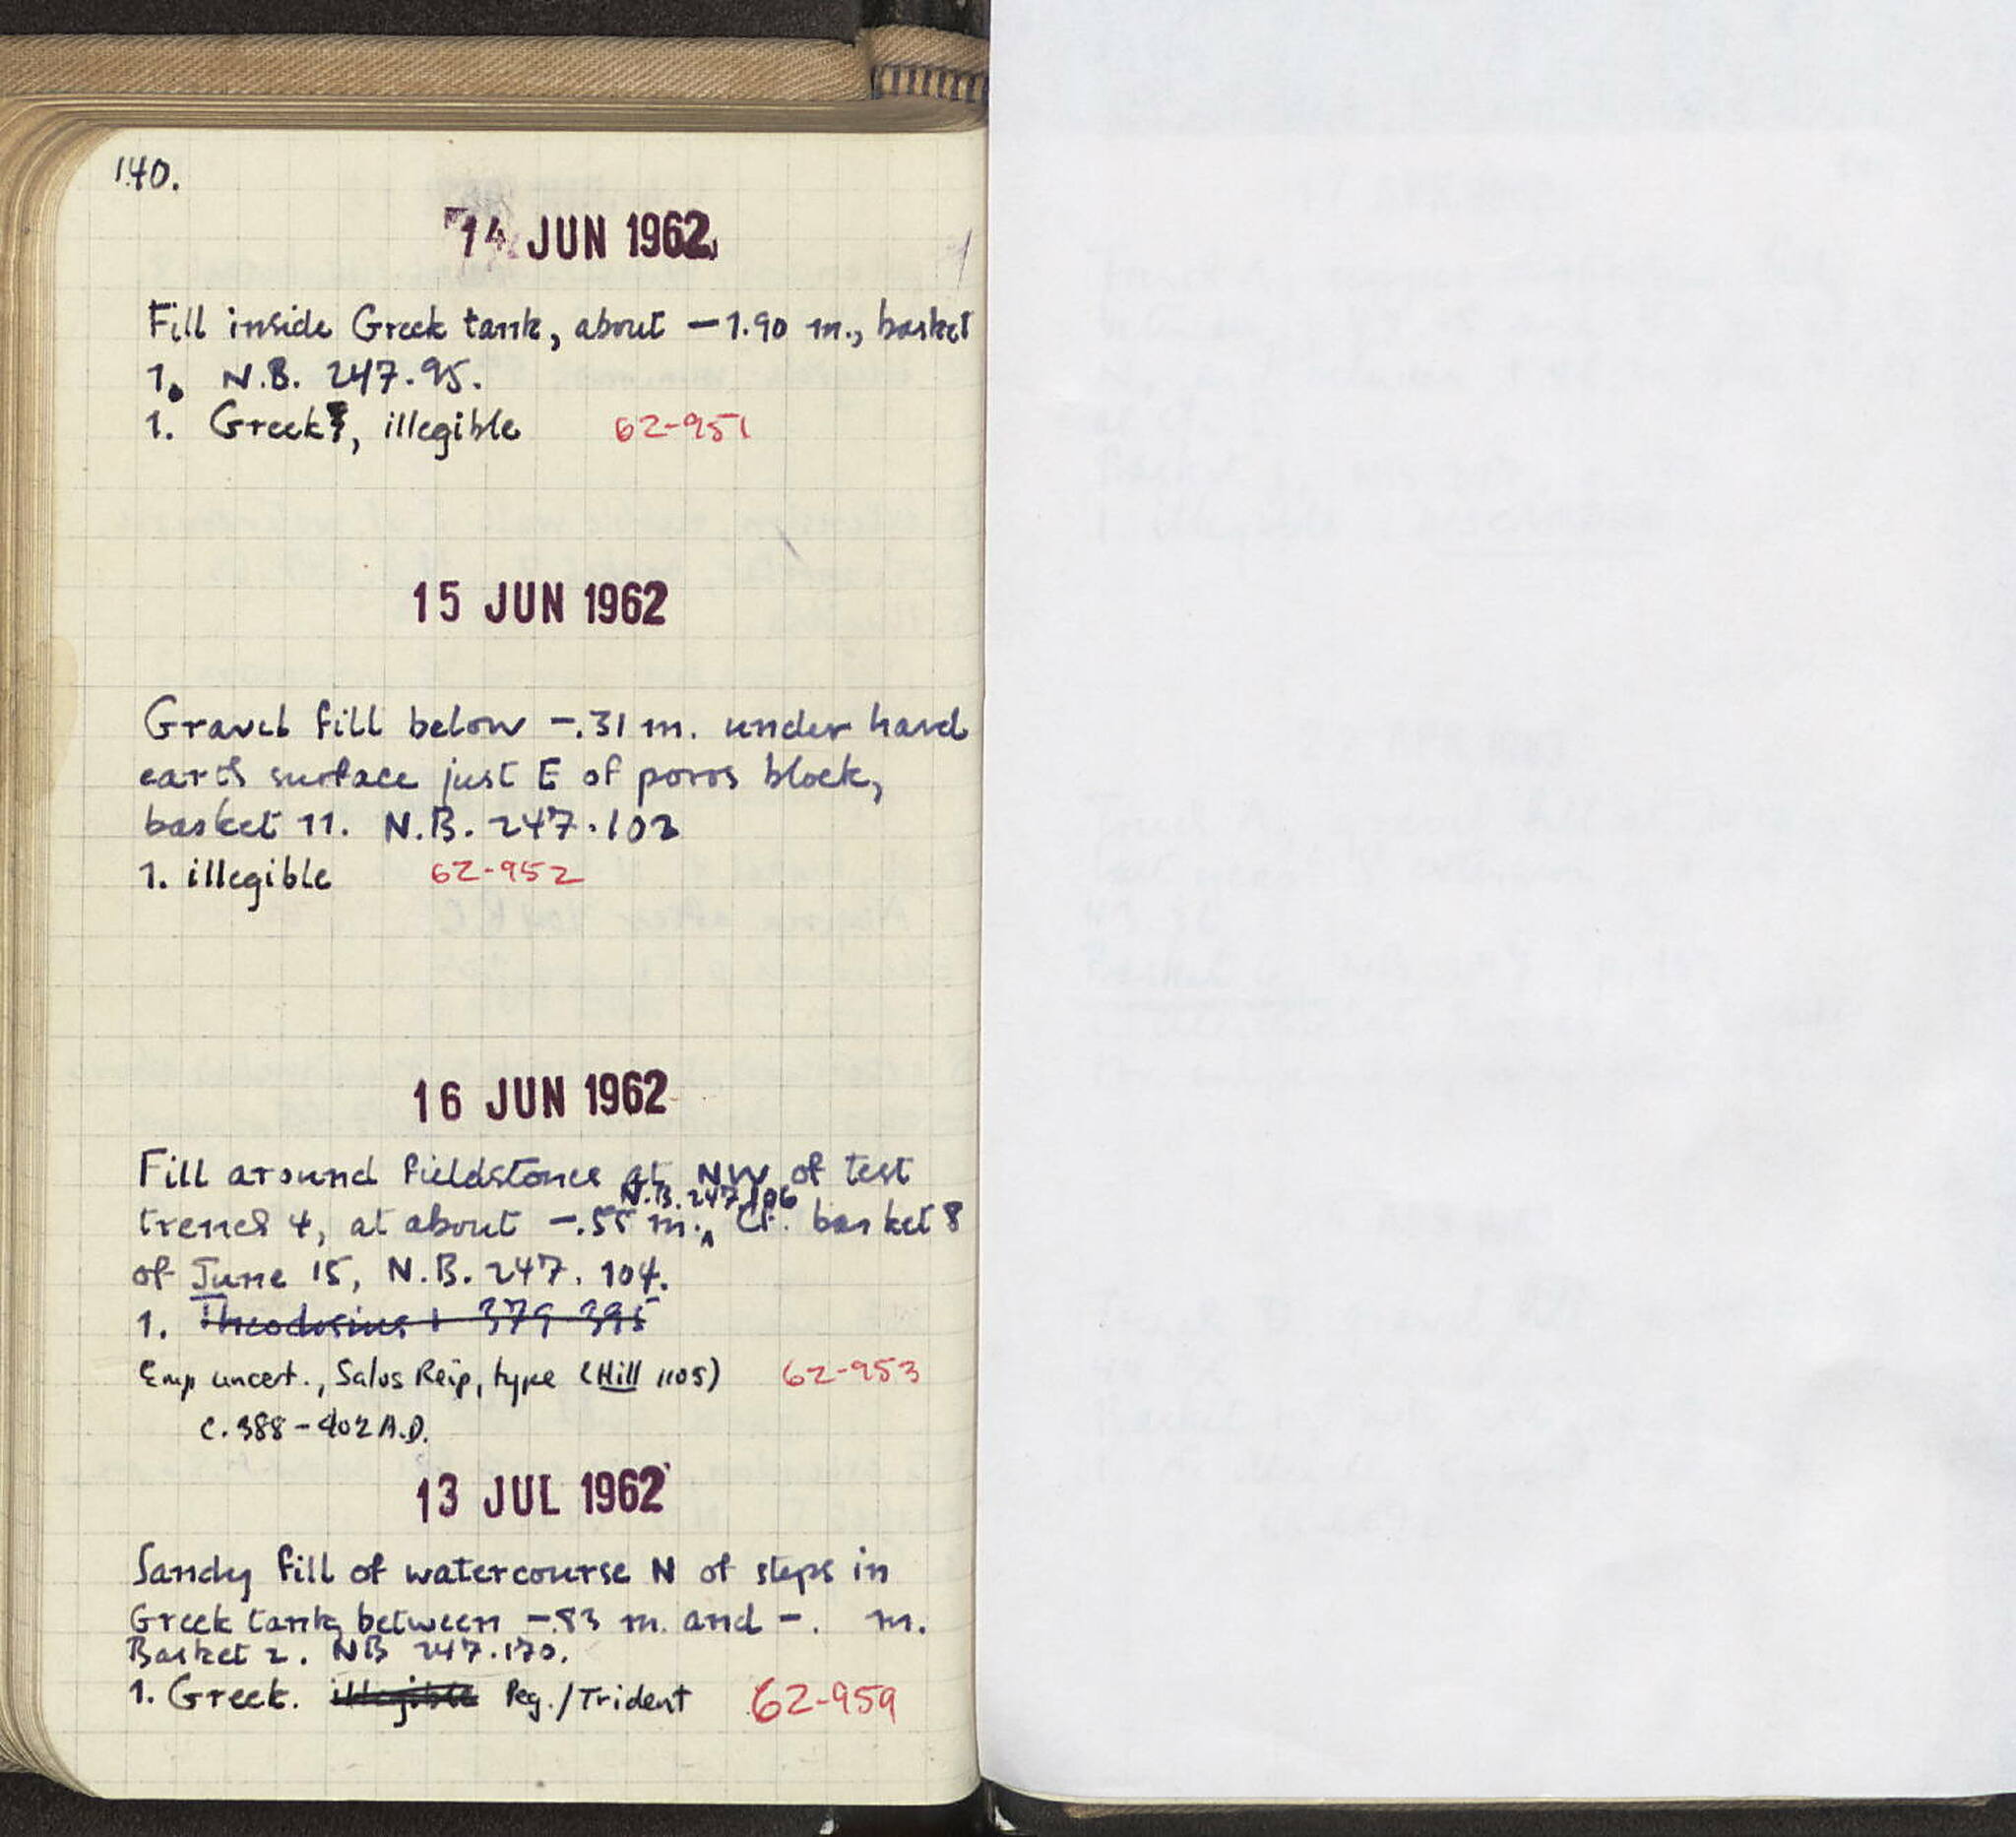 140.
14 JUN 1962
Fill inside Greek tank, about -1.90 m., basket
1. N.B. 247.95.
1. Greek?, illegible 62-951
15 JUN 1962
Gravel fill below -.31 m. under hard
earth surface just E of poros block,
basket 11. N.B. 247.102
1. illegible 62-952
16 JUN 1962
Fill around fieldstones at NW of test
N.B. 247.106
trench 4, at about -.55 m.^ Cf. basket 8
of June 15, N.B. 247. 104.
1. Theodosius I 379-395
Emp uncert., Salus Reip, type (Hill 1105) 62-953
c. 388-402 A.D.
13 JUL 1962
Sandy fill of watercourse N of steps in
Greek tank, between -.83 m. and -. m.
Basket 2. NB 247.170.
1. Greek. illegible Peg./Trident 62-959